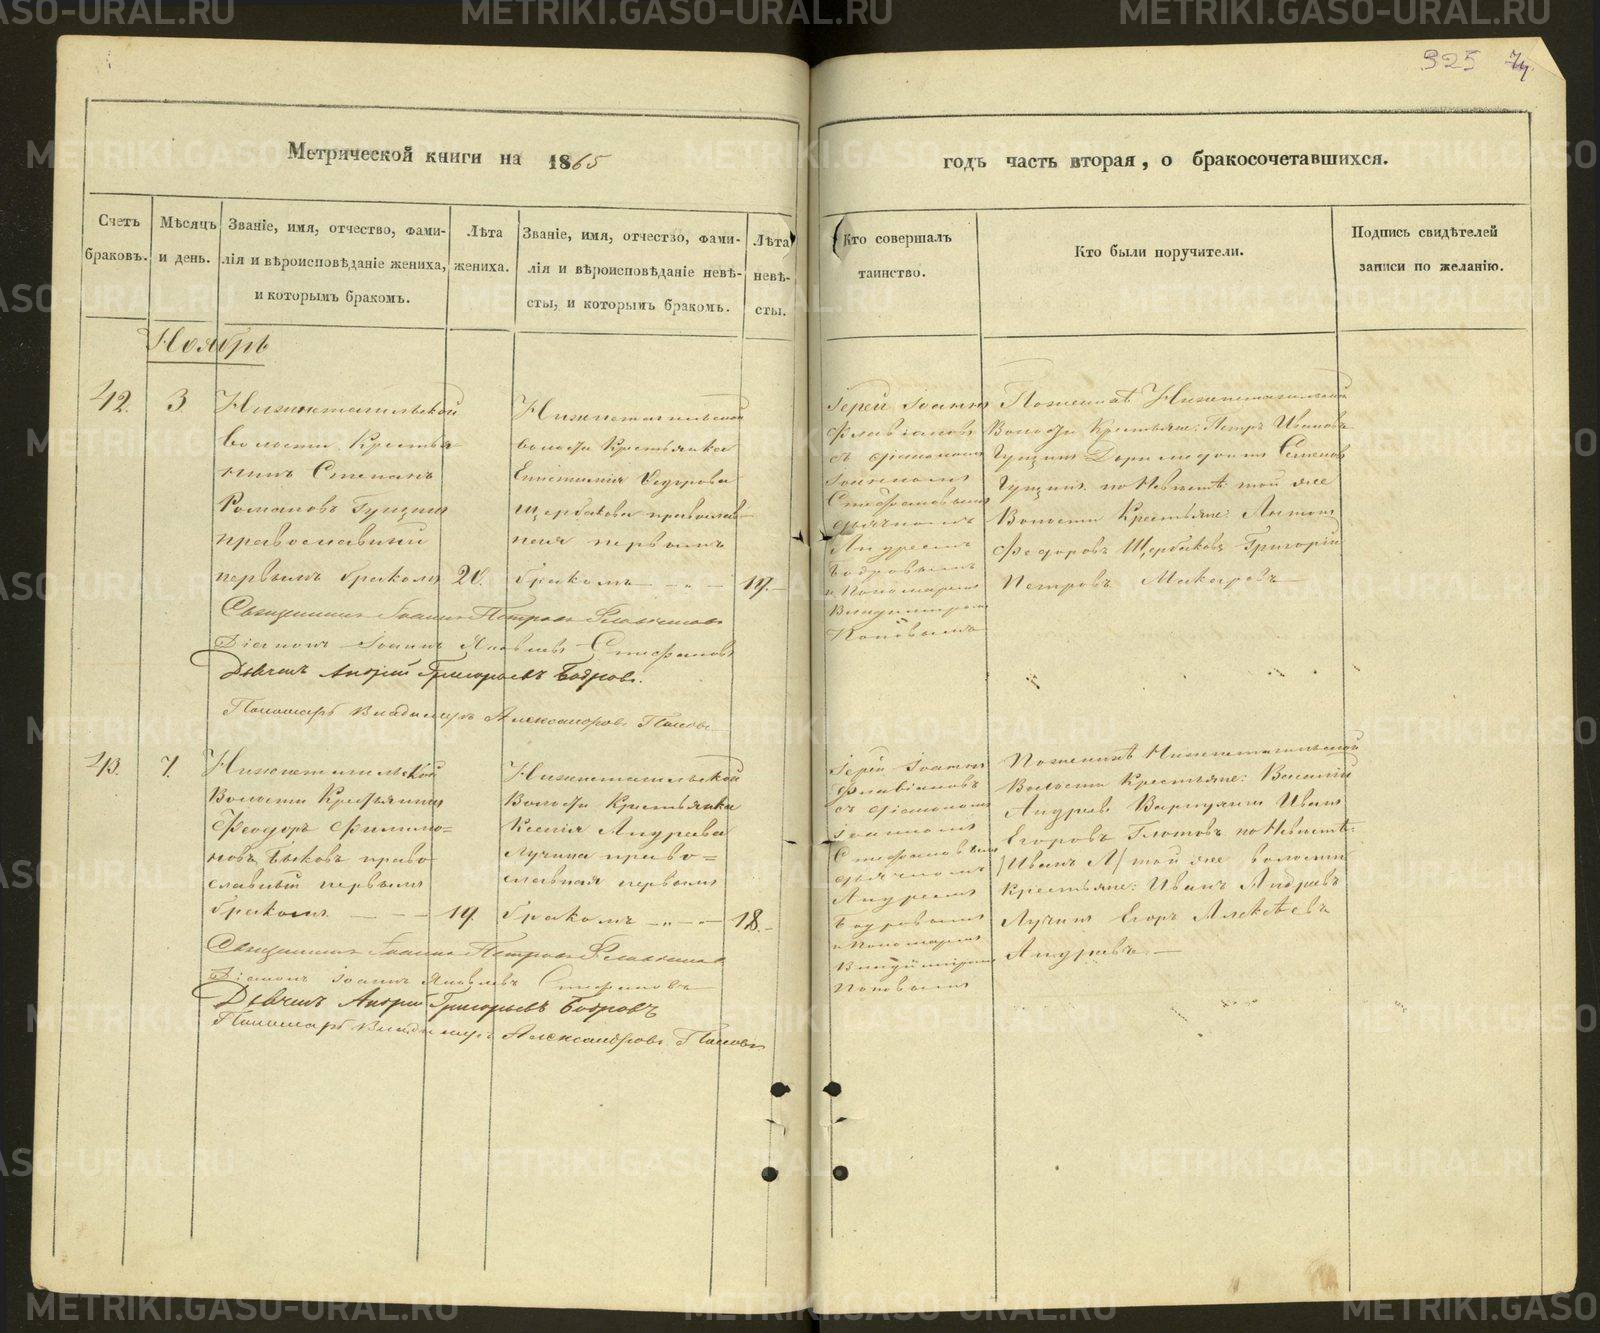 325 74.
Метрической книги на 1865
годъ часть вторая, о бракосочетавшихся.
Счетъ браковъ.
Мѣсяцъ и день.
Званіе, имя, отчество, фами-
лія и вѣроисповѣданіе жениха,
и которымъ бракомъ.
Лѣта
жениха.
Званіе, имя, отчество, фами-
лія и вѣроисповѣданіе невѣ-
сты, и которымъ бракомъ.
Лѣта
невѣ-
сты.
Кто совершалъ
таинство.
Кто были поручители.
Подпись свидѣтелей
записи по желанію.
Ноябрь
42.
3
Нижнетагильской
волости Крестья
нинъ Степанъ
Романовъ Гущинъ
православный
первымъ бракомъ
20.
Нижнетагильской
волости Крестьянка
Епистимія Ѳедорова
Щербакова православ-
ная первымъ
бракомъ
17.
Іерей Іоаннъ
Флавіановъ
съ діакономъ
Іоанномъ
Стефановымъ
дьячкомъ
Андреемъ
Бодровымъ
и Пономаремъ
Владимиромъ
Поповымъ
По женихѣ Нижнетагильской
Волости Крестьяне: Петръ Ивановъ
Гущинъ Доримедонтъ Семеновъ
Гущинъ по Невѣстѣ той же
Волости Крестьяне: Антонъ
Ѳедоровъ Щербаковъ Григорій
Петровъ Макаровъ
Священникъ Іоаннъ Петровъ Флавіановъ
Діаконъ Іоаннъ Яковлевъ Стефановъ
Дьячекъ Андрей Григорьевъ Бодровъ.
Пономарь Владимиръ Александровъ Поповъ
43.
7.
Нижнетагильской
Волости Крестьянинъ
Феодоръ Филимо=
новъ Быковъ право
славный первымъ
бракомъ
19.
Нижнетагильской
Волости Крестьянка
Ксенія Андреева
Лучина право=
славная первымъ
бракомъ
18.
Іерей Іоаннъ
Флавіановъ
съ діакономъ
Іоанномъ
Стефановымъ
дьячкомъ
Андреемъ
Бодровымъ
и Пономаремъ
Владиміромъ
Поповымъ
По женихѣ Нижнетагильской
Волости Крестьяне: Василій
Андреевъ Иванъ
Егоровъ Глотовъ по Невѣстѣ:
/Иванъ А/ той же волости
Крестьяне: Иванъ Андреевъ
Лучинъ Егоръ Алексѣевъ
Андреевъ.
Священникъ Іоаннъ Петровъ Флавіановъ
Діаконъ Іоаннъ Яковлевъ Стефановъ
Дьячекъ Андрей Григорьевъ Бодровъ
Пономарь Владимиръ Александровъ Поповъ
METRIKI.GASO-URAL.RU